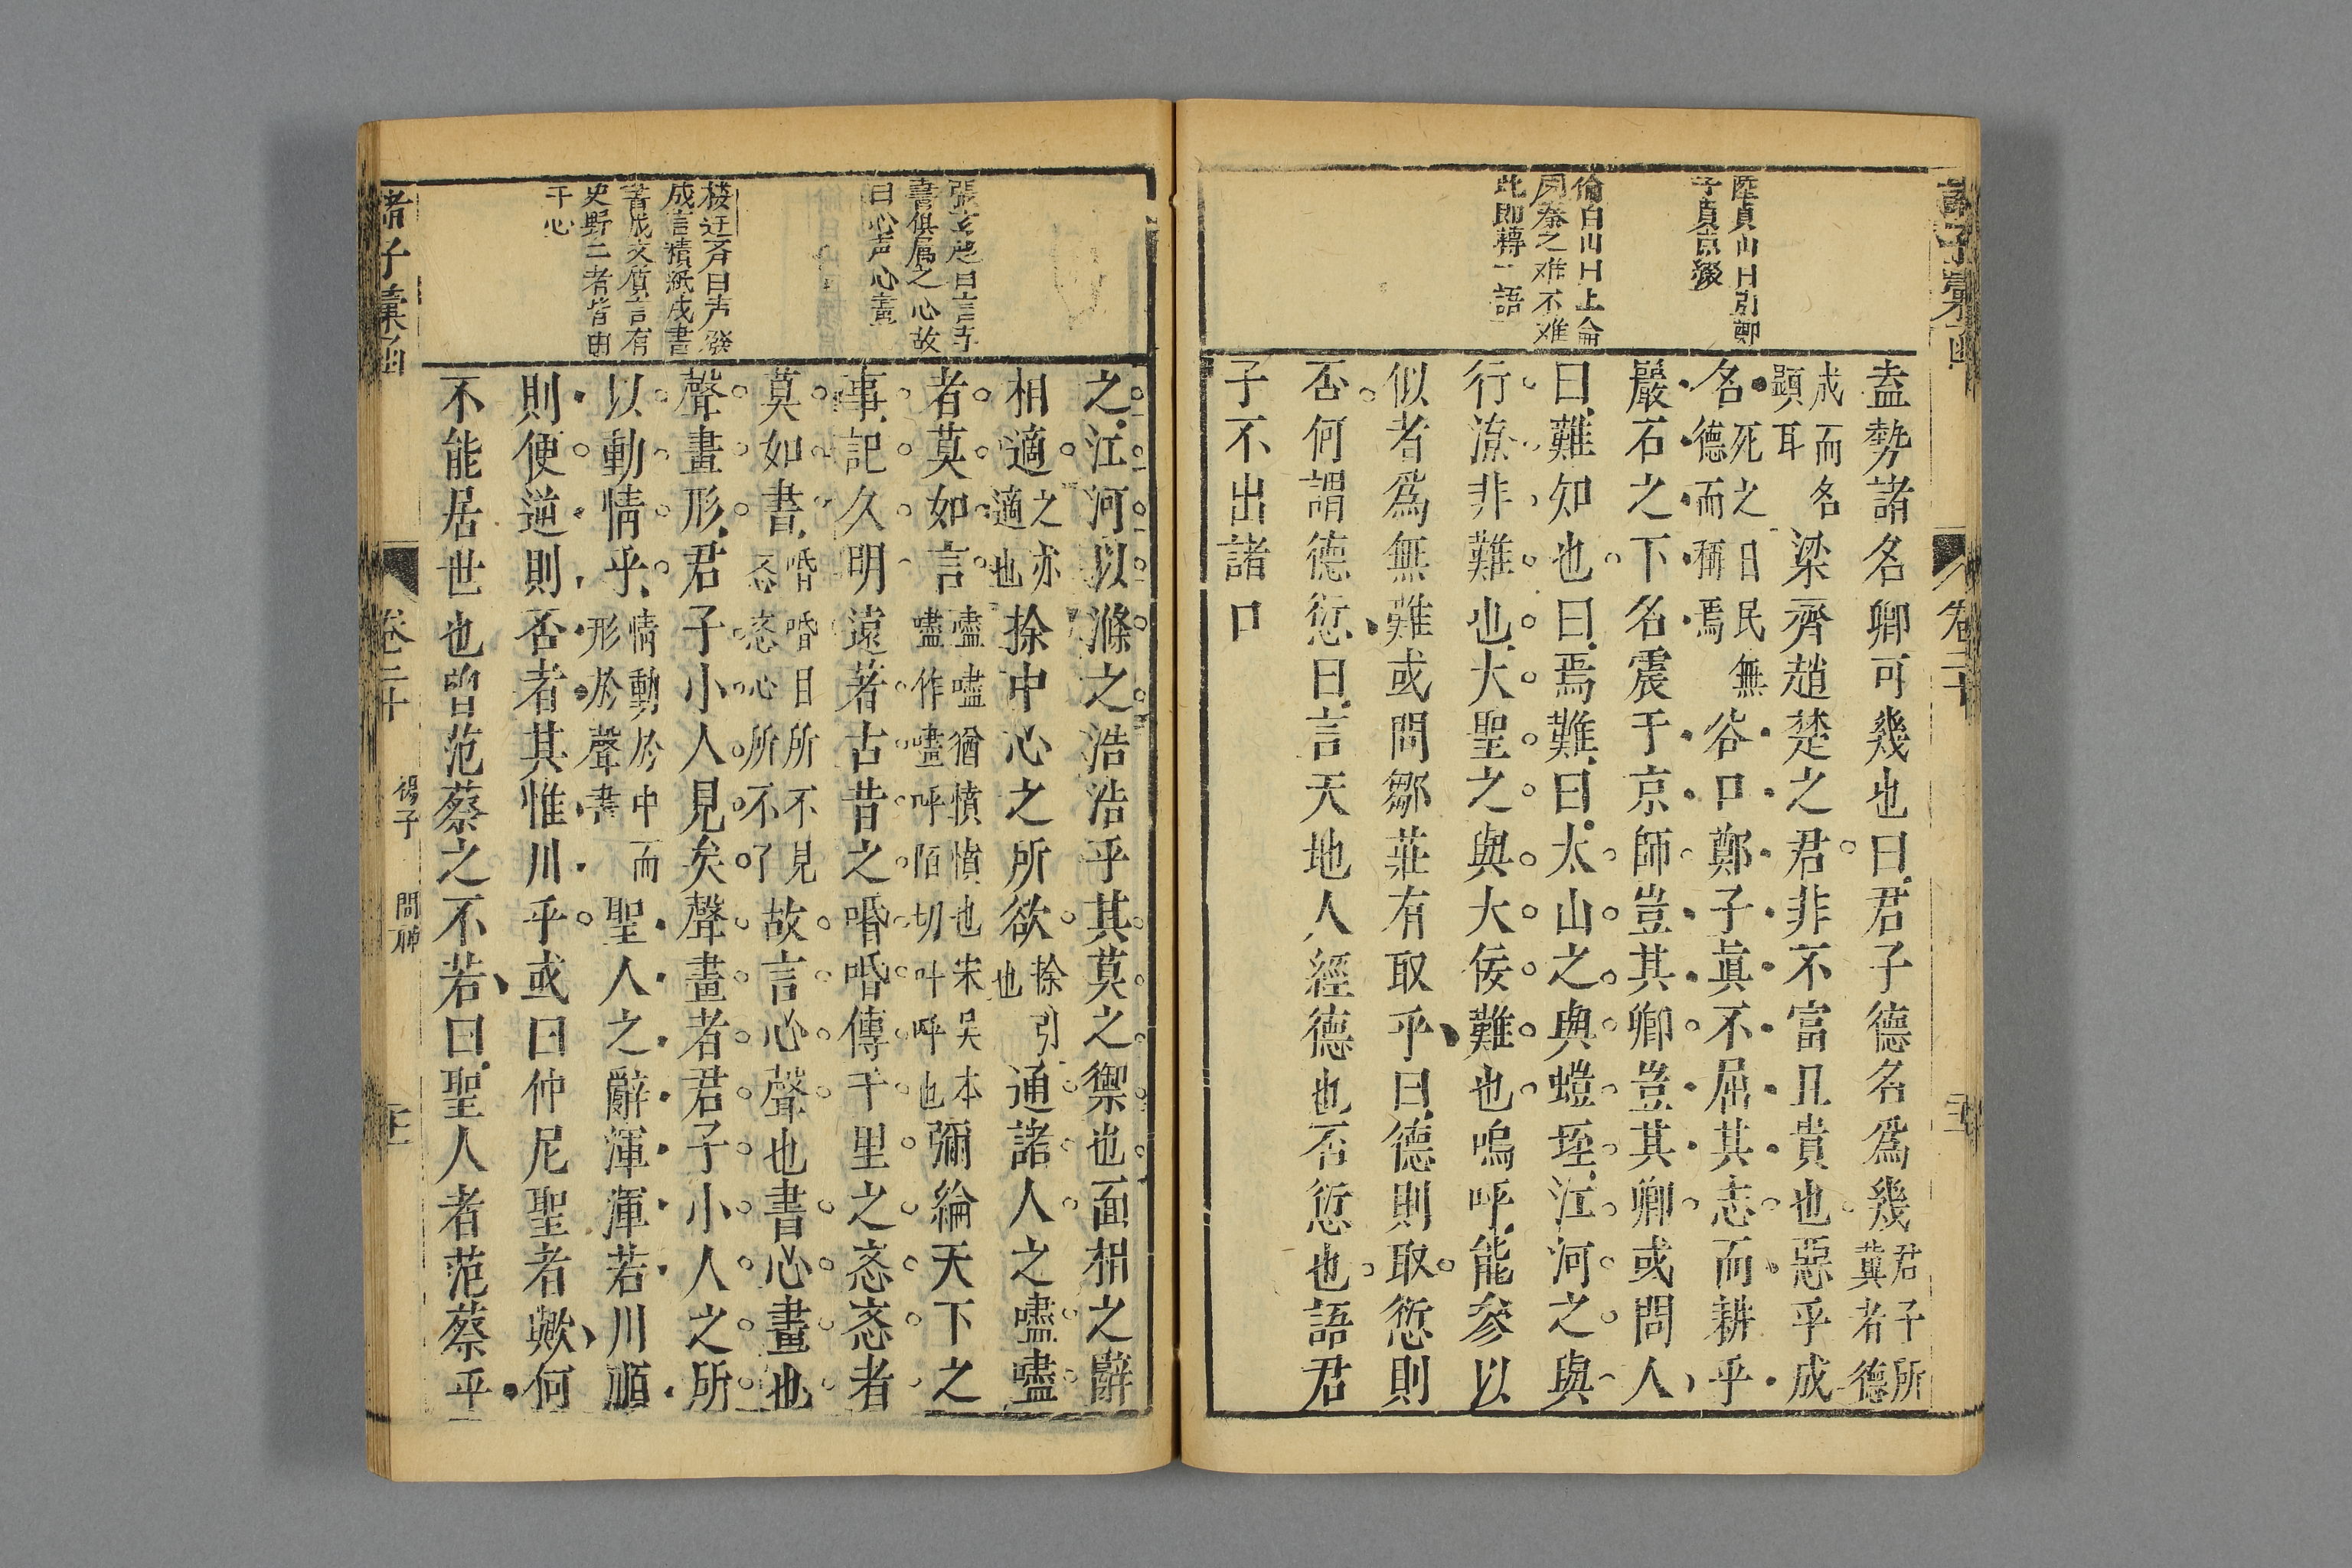 諸子彙函
卷二十
陸貞山曰引鄭
子真京發
倫白山曰上侖
周秦之难不难
此即轉一語
盍勢諸名卿可幾也曰君子德名爲幾君子所冀者德
成而名顯耳梁齊趙楚之君非不富且貴也惡乎成
名死之日民無德而稱焉谷口鄭子眞不屈其志而耕乎
巖石之下名震于京師豈其卿豈其卿或問人
曰難知也曰焉難曰太山之與螘垤江河之與
行潦非難也大聖之與大佞難也嗚呼能參以
似者爲無難或問鄒莊有取乎曰德則取愆則
否何謂德愆曰言天地人經德也否愆也語君
子不出諸口
曰心声心畫
書俱屬之心故
桜迂斉曰声發
成言積紙成書
著成文質言有
史野二者皆由
于心
之江河以滌之浩浩乎其莫之禦也面相之辭
相適適之亦也捈中心之所欲捈引也通諸人之嚍嚍
者莫如言嚍嚍猶憤憤也宋吴本嚍作嚍呼陌切叶呼也彌綸天下之
事記久明遠著古昔之㖧㖧傳千里之忞忞者
莫如書㖧㖧目所不見忞忞心所不了故言心聲也書心畫也
聲畫形君子小人見矣聲畫者君子小人之所
以動情乎情動於中而形於聲書聖人之辭渾渾若川順
則便逆則否者其惟川乎或曰仲尼聖者歟何
不能居世也曽范蔡之不若曰聖人者范蔡乎
諸子彙函
卷二十
楊子
問神